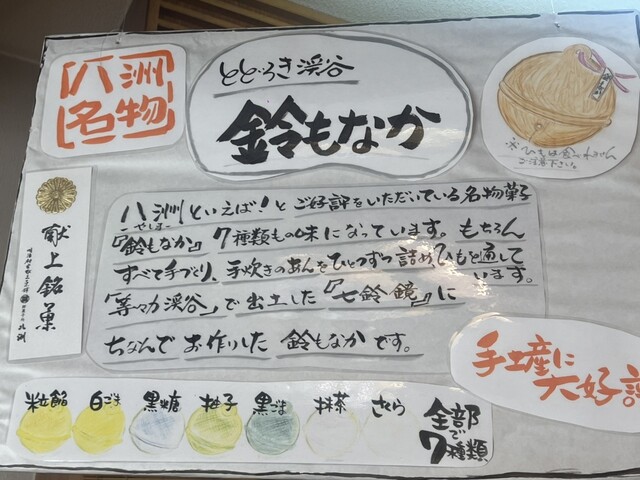 八洲
名物
とどろき渓谷
鈴もなか
※ひもは食べれません
ご注意下さいな
献上銘菓
八洲といえば!とご好評をいただいている名物菓子
やしま
『鈴もなか』7種類もの味になっています。もちろん
すべて手づくり、手炊きのあんをひとつずつ詰め、ひもを通して
います。
「等々力渓谷」で出土した『七鈴鏡』に
ちなんでお作りした鈴もなかです。
手土産に
大好評
粒餡 白ごま 黒糖 柚子 黒ごま 抹茶 さくら
全部
で
7種類